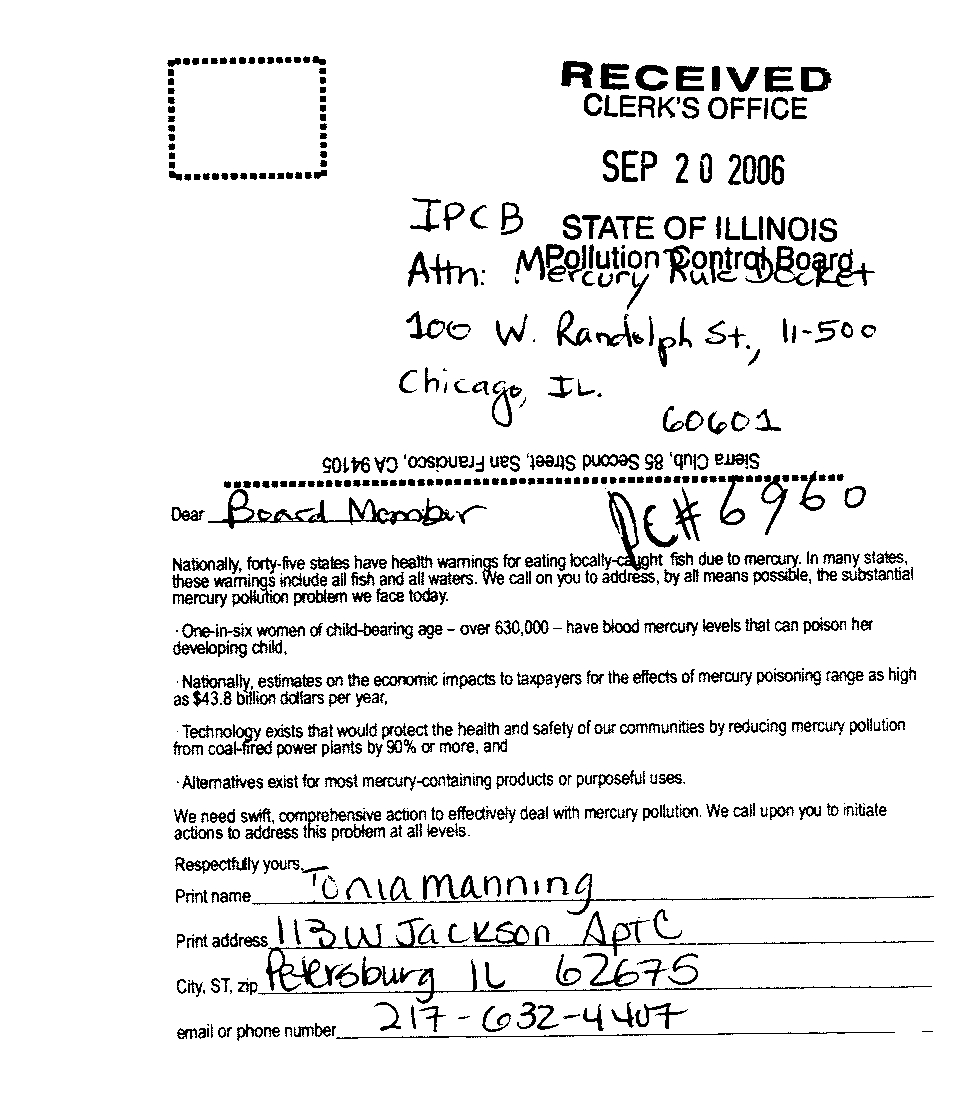 RECEIVED
CLERK'S OFFICE
SEP 20 2006
IPCB
STATE OF ILLINOIS
Pollution Control Board
Attn: Mercury Rule Docket
100 W. Randolph St., 11-500
Chicago, IL.
60601
Sierra Club, 85 Second Street, San Francisco, CA 94105
PC# 6960
Dear Board Member
Nationally, forty-five states have health warnings for eating locally-caught fish due to mercury. In many states,
these warnings include all fish and all waters. We call on you to address, by all means possible, the substantial
mercury pollution problem we face today.
· One-in-six women of child-bearing age – over 630,000 – have blood mercury levels that can poison her
developing child,
· Nationally, estimates on the economic impacts to taxpayers for the effects of mercury poisoning range as high
as $43.8 billion dollars per year,
· Technology exists that would protect the health and safety of our communities by reducing mercury pollution
from coal-fired power plants by 90% or more, and
· Alternatives exist for most mercury-containing products or purposeful uses.
We need swift, comprehensive action to effectively deal with mercury pollution. We call upon you to initiate
actions to address this problem at all levels.
Respectfully yours,
Print name Tonia Manning
Print address 113 W Jackson Apt C
City, ST, zip Petersburg IL 62675
email or phone number 217-632-4407